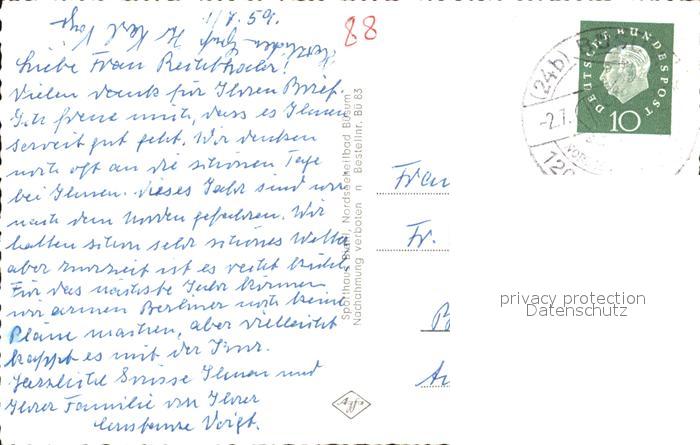 1/7.59.
88
Liebe Frau
Vielen Dank für Ihren Brief.
Ich freue mich, dass es Ihnen
soweit gut geht. Wir denken
noch oft an die schönen Tage
bei Ihnen. Dieses Jahr sind wir
nach dem Norden gefahren. Wir
hatten schon sehr schönes Wetter
aber zurzeit ist es recht kühl.
Für das nächste Jahr können
wir armen Berliner noch keine
Pläne machen, aber vielleicht
klappt es mit der
Herzliche Grüsse Ihnen und
Ihrer Familie von Ihrer
Constanze Voigt.
Sporthaus Nordseeheilbad Büsum
Nachahmung verboten Bestellnr. Bü 83
Frau
Fr.
Agfa
(24b)
-2.7.
DEUTSCHE BUNDESPOST
10
privacy protection
Datenschutz